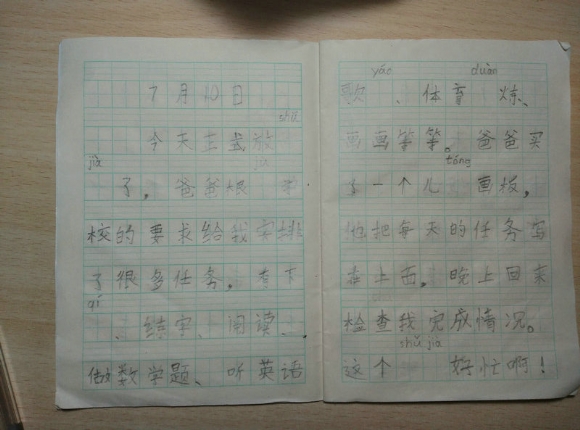 7月10日
shǔ
今天正式放
jià
了,爸爸根
校的要求给我安排
了很多任务。有下
qí
、练字、阅读、
做数学题、听英语
yáo duàn
歌、体育炼、
画画等等。爸爸买
tóng
了一个儿画板,
他把每天的任务写
在上面,晚上回来
检查我完成情况。
shǔ jià
这个好忙啊!